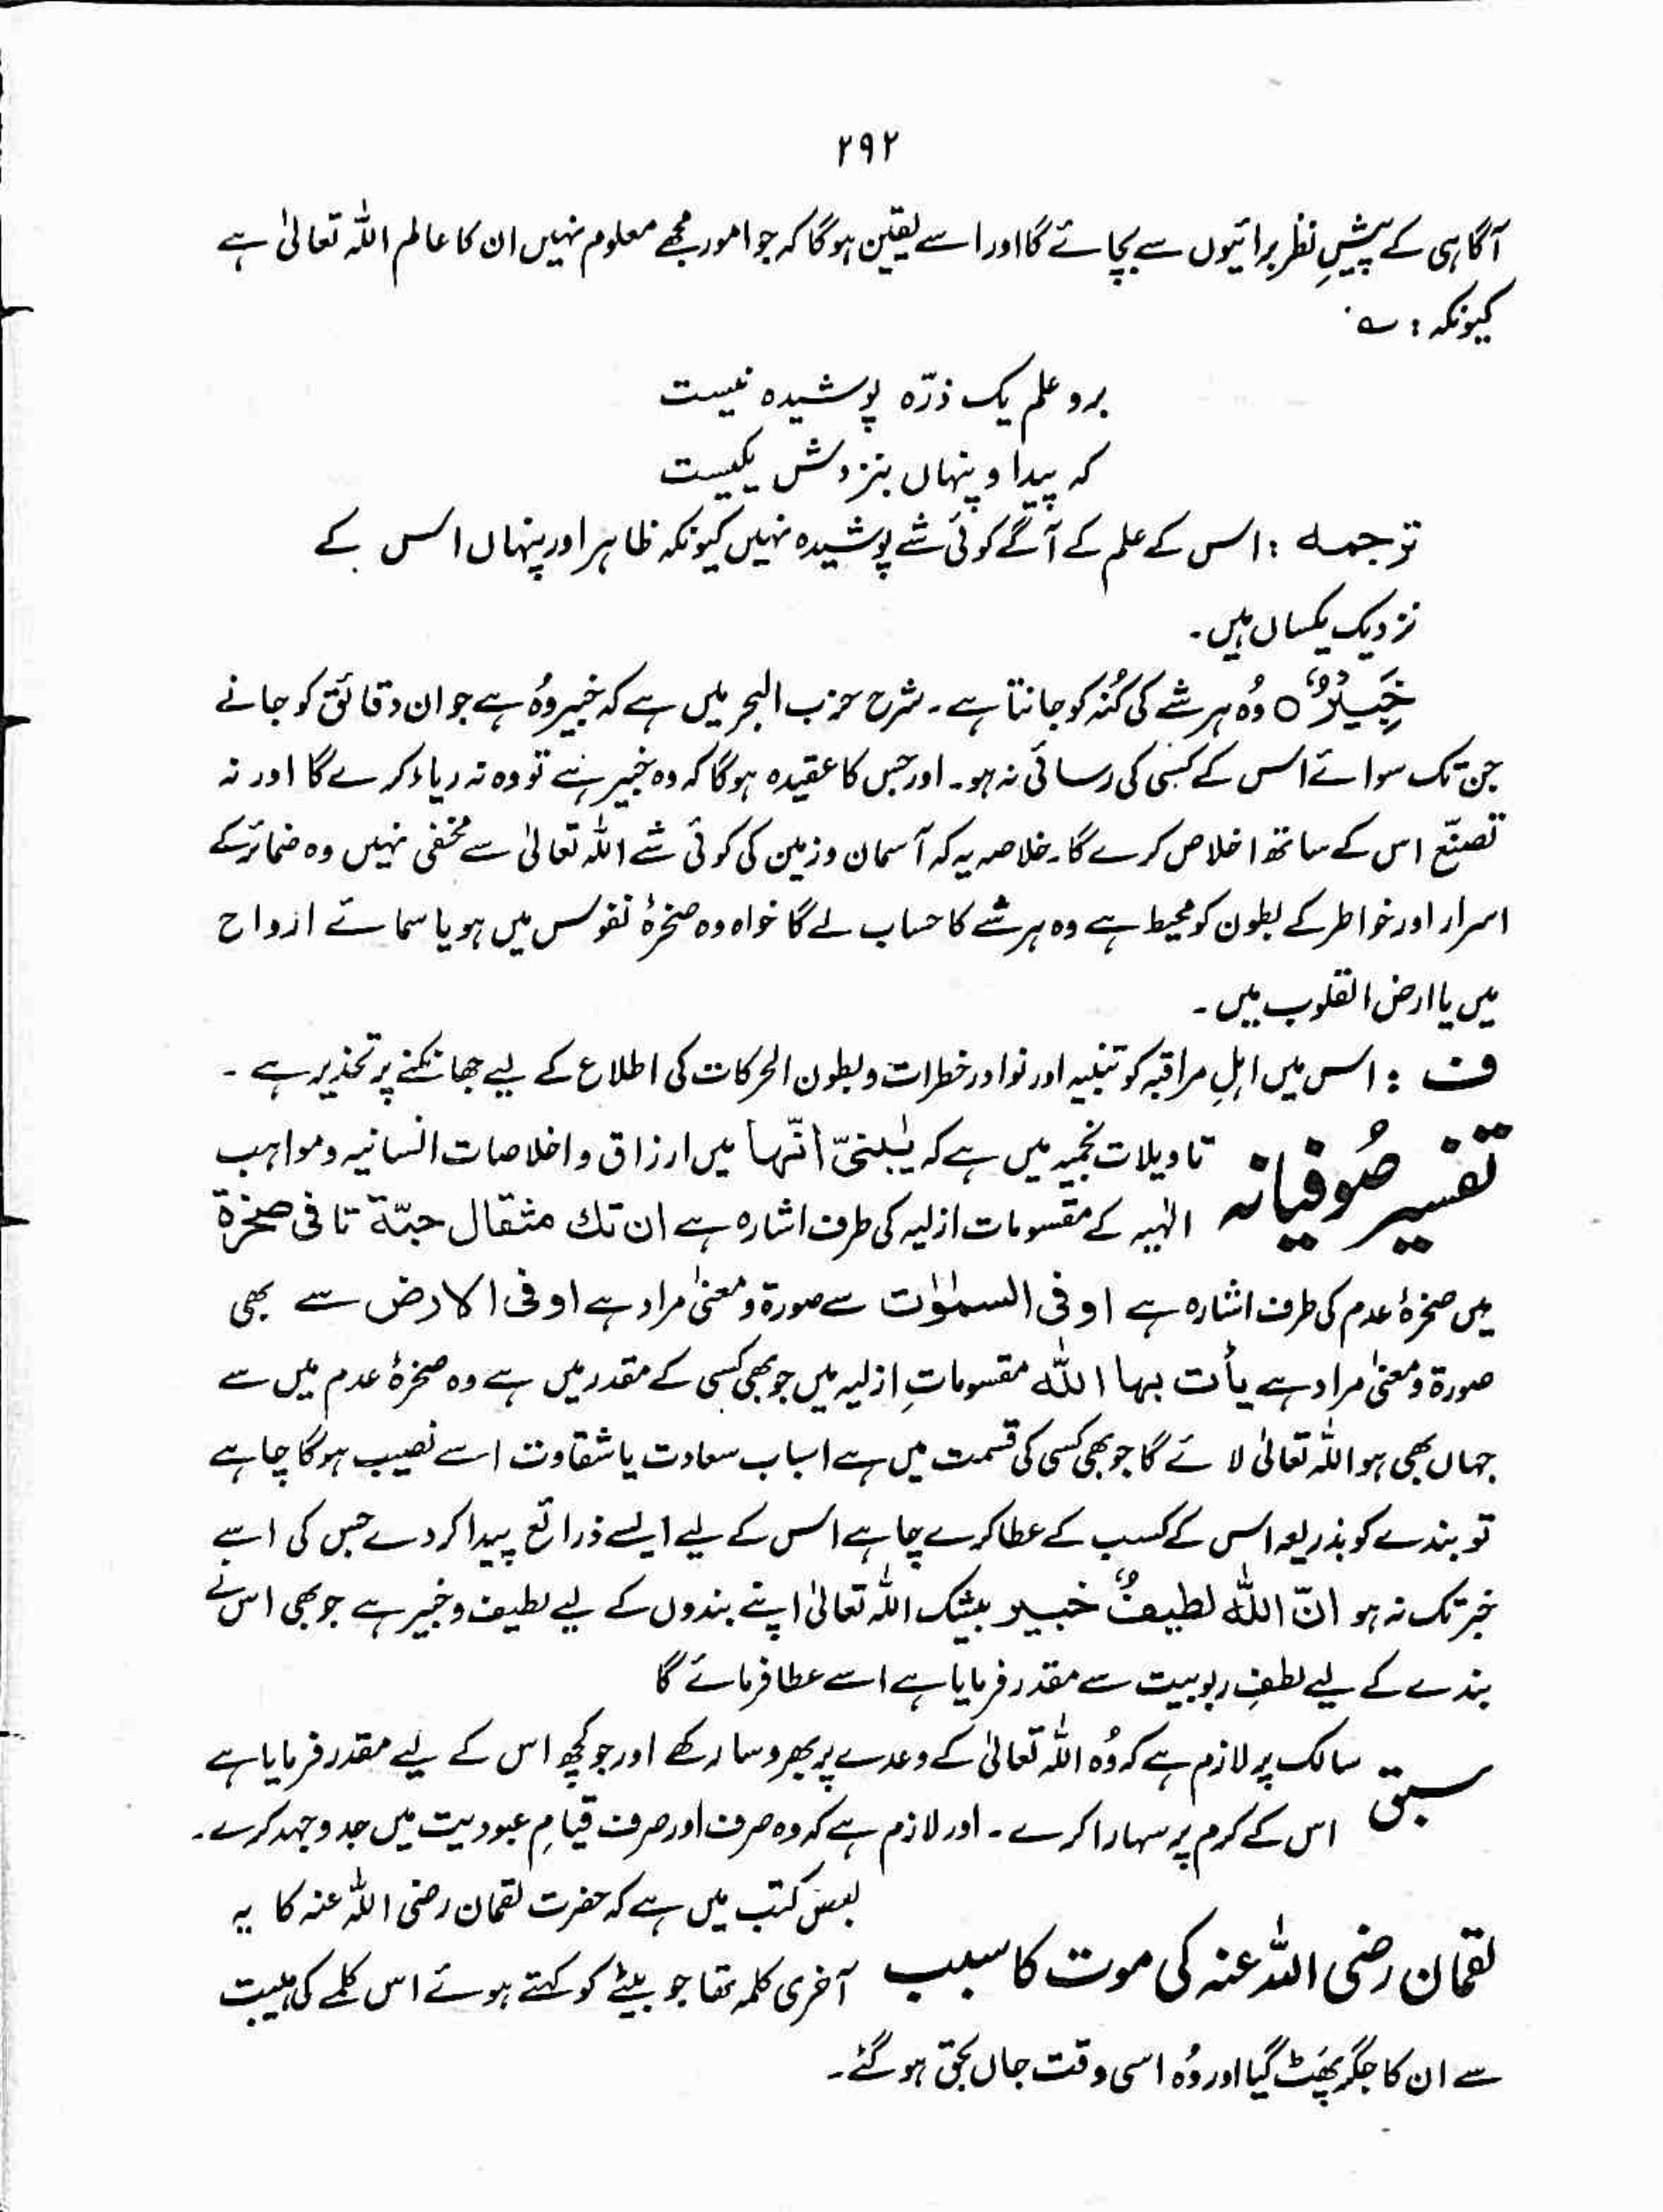 ۲۹۲
آگاہی کے پیشِ نظر برائیوں سے بچائے گا اور اسے یقین ہوگا کہ جو امور مجھے معلوم نہیں ان کا عالم اللہ تعالیٰ ہے
کیونکہ : ؎
برو علم یک ذرّہ پوشیدہ نیست
کہ پیدا و پنہاں بنزدش یکیست
ترجمہ : اس کے علم کے آگے کوئی شے پوشیدہ نہیں کیونکہ ظاہر اور پنہاں اس کے
نزدیک یکساں ہیں۔
خَبِیْرٌ ○ وُہ ہر شے کی کُنہ کو جانتا ہے۔ شرح حزب البحر میں ہے کہ خبیر وُہ ہے جو ان دقائق کو جانے
جن تک سوائے اس کے کسی کی رسائی نہ ہو۔ اور جس کا عقیدہ ہوگا کہ وہ خبیر ہے تو وہ نہ ریاء کرے گا اور نہ
تصنّع اس کے ساتھ اخلاص کرے گا۔ خلاصہ یہ کہ آسمان و زمین کی کوئی شے اللہ تعالیٰ سے مخفی نہیں وہ ضمائر کے
اسرار اور خواطر کے بطون کو محیط ہے وہ ہر شے کا حساب لے گا خواہ وہ صخرۂ نفوس میں ہو یا سمائے ارواح
میں یا ارض القلوب میں۔
ف : اس میں اہلِ مراقبہ کو تنبیہ اور نوادر خطرات و بطون الحرکات کی اطلاع کے لیے جھانکنے پر تحذیر ہے۔
تفسیر صُوفیانہ تاویلات نجمیہ میں ہے کہ یٰبنیّ انّہا میں ارزاق و اخلاصات انسانیہ و مواہب
الٰہیہ کے مقسومات ازلیہ کی طرف اشارہ ہے ان تك مثقال حبّة تا فی صخرة
میں صخرۂ عدم کی طرف اشارہ ہے او فی السمٰوٰت سے صورۃ و معنیٰ مراد ہے او فی الارض سے بھی
صورۃ و معنیٰ مراد ہے یأت بہا اللّٰہ مقسوماتِ ازلیہ میں جو بھی کسی کے مقدر میں ہے وہ صخرۂ عدم میں سے
جہاں بھی ہو اللہ تعالیٰ لائے گا جو بھی کسی کی قسمت میں ہے اسباب سعادت یا شقاوت اسے نصیب ہوگا چاہے
تو بندے کو بذریعہ اس کے کسب کے عطا کرے چاہے اس کے لیے ایسے ذرائع پیدا کر دے جس کی اسے
خبر تک نہ ہو انّ اللّٰہ لطیفٌ خبیر بیشک اللہ تعالیٰ اپنے بندوں کے لیے لطیف و خبیر ہے جو بھی اس نے
بندے کے لیے لطفِ ربوبیت سے مقدر فرمایا ہے اسے عطا فرمائے گا
سبق سالک پر لازم ہے کہ وُہ اللہ تعالیٰ کے وعدے پر بھروسا رکھے اور جو کچھ اس کے لیے مقدر فرمایا ہے
اس کے کرم پر سہارا کرے۔ اور لازم ہے کہ وہ صرف اور صرف قیامِ عبودیت میں جد و جہد کرے۔
بعض کتب میں ہے کہ حضرت لقمان رضی اللہ عنہ کا یہ
لقمان رضی اللہ عنہ کی موت کا سبب آخری کلمہ تھا جو بیٹے کو کہتے ہوئے اس کلمے کی ہیبت
سے ان کا جگر پھٹ گیا اور وُہ اسی وقت جاں بحق ہو گئے۔